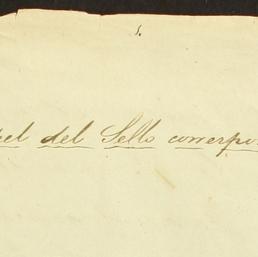 s.
pel del Sello correspo